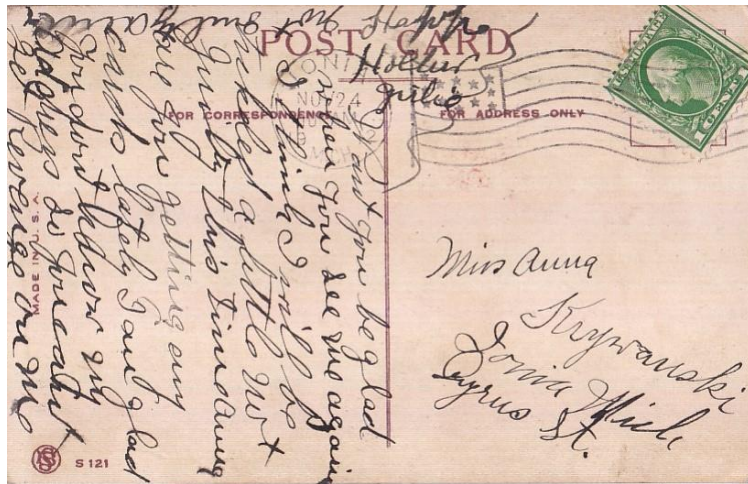 POST CARD
FOR CORRESPONDENCE
FOR ADDRESS ONLY
NOV 24
MICH
1 CENT
MADE IN U.S.A.
S 121
Wont you be glad
when you see me again
I think I will be
a little
this time Anna
are you getting any
cards lately I am glad
you dont know my
address so you cant
get revenge on me
Miss Anna
Krywanski
Ionia Mich
Cyrus St.